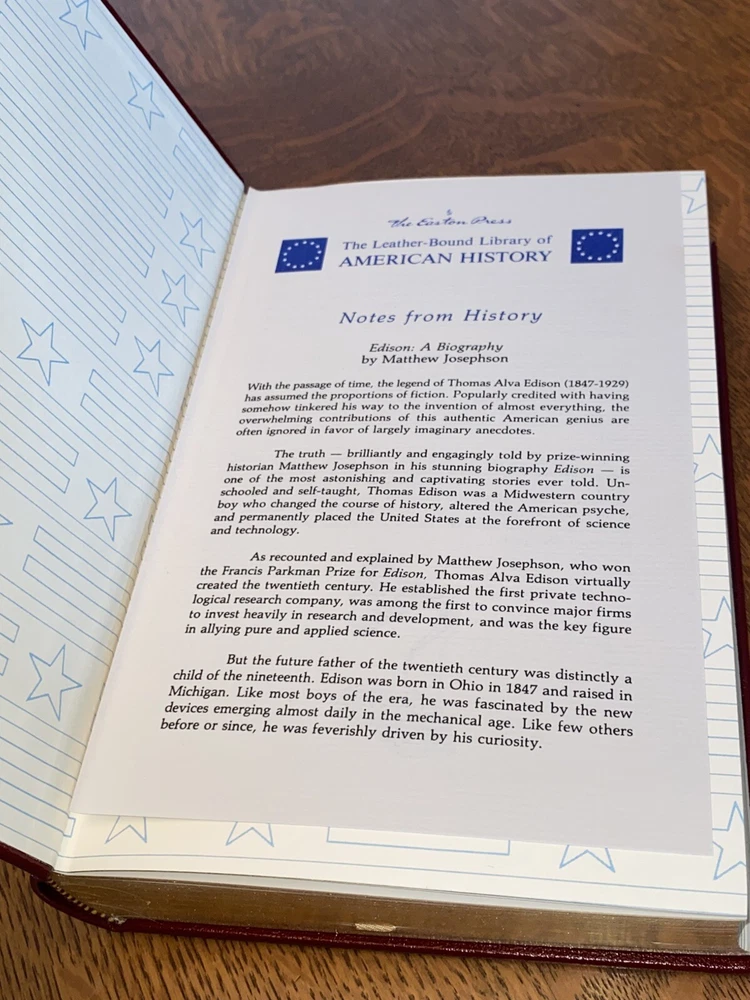 The Easton Press
The Leather-Bound Library of
AMERICAN HISTORY
Notes from History
Edison: A Biography
by Matthew Josephson
With the passage of time, the legend of Thomas Alva Edison (1847-1929)
has assumed the proportions of fiction. Popularly credited with having
somehow tinkered his way to the invention of almost everything, the
overwhelming contributions of this authentic American genius are
often ignored in favor of largely imaginary anecdotes.
The truth — brilliantly and engagingly told by prize-winning
historian Matthew Josephson in his stunning biography Edison — is
one of the most astonishing and captivating stories ever told. Un-
schooled and self-taught, Thomas Edison was a Midwestern country
boy who changed the course of history, altered the American psyche,
and permanently placed the United States at the forefront of science
and technology.
As recounted and explained by Matthew Josephson, who won
the Francis Parkman Prize for Edison, Thomas Alva Edison virtually
created the twentieth century. He established the first private techno-
logical research company, was among the first to convince major firms
to invest heavily in research and development, and was the key figure
in allying pure and applied science.
But the future father of the twentieth century was distinctly a
child of the nineteenth. Edison was born in Ohio in 1847 and raised in
Michigan. Like most boys of the era, he was fascinated by the new
devices emerging almost daily in the mechanical age. Like few others
before or since, he was feverishly driven by his curiosity.